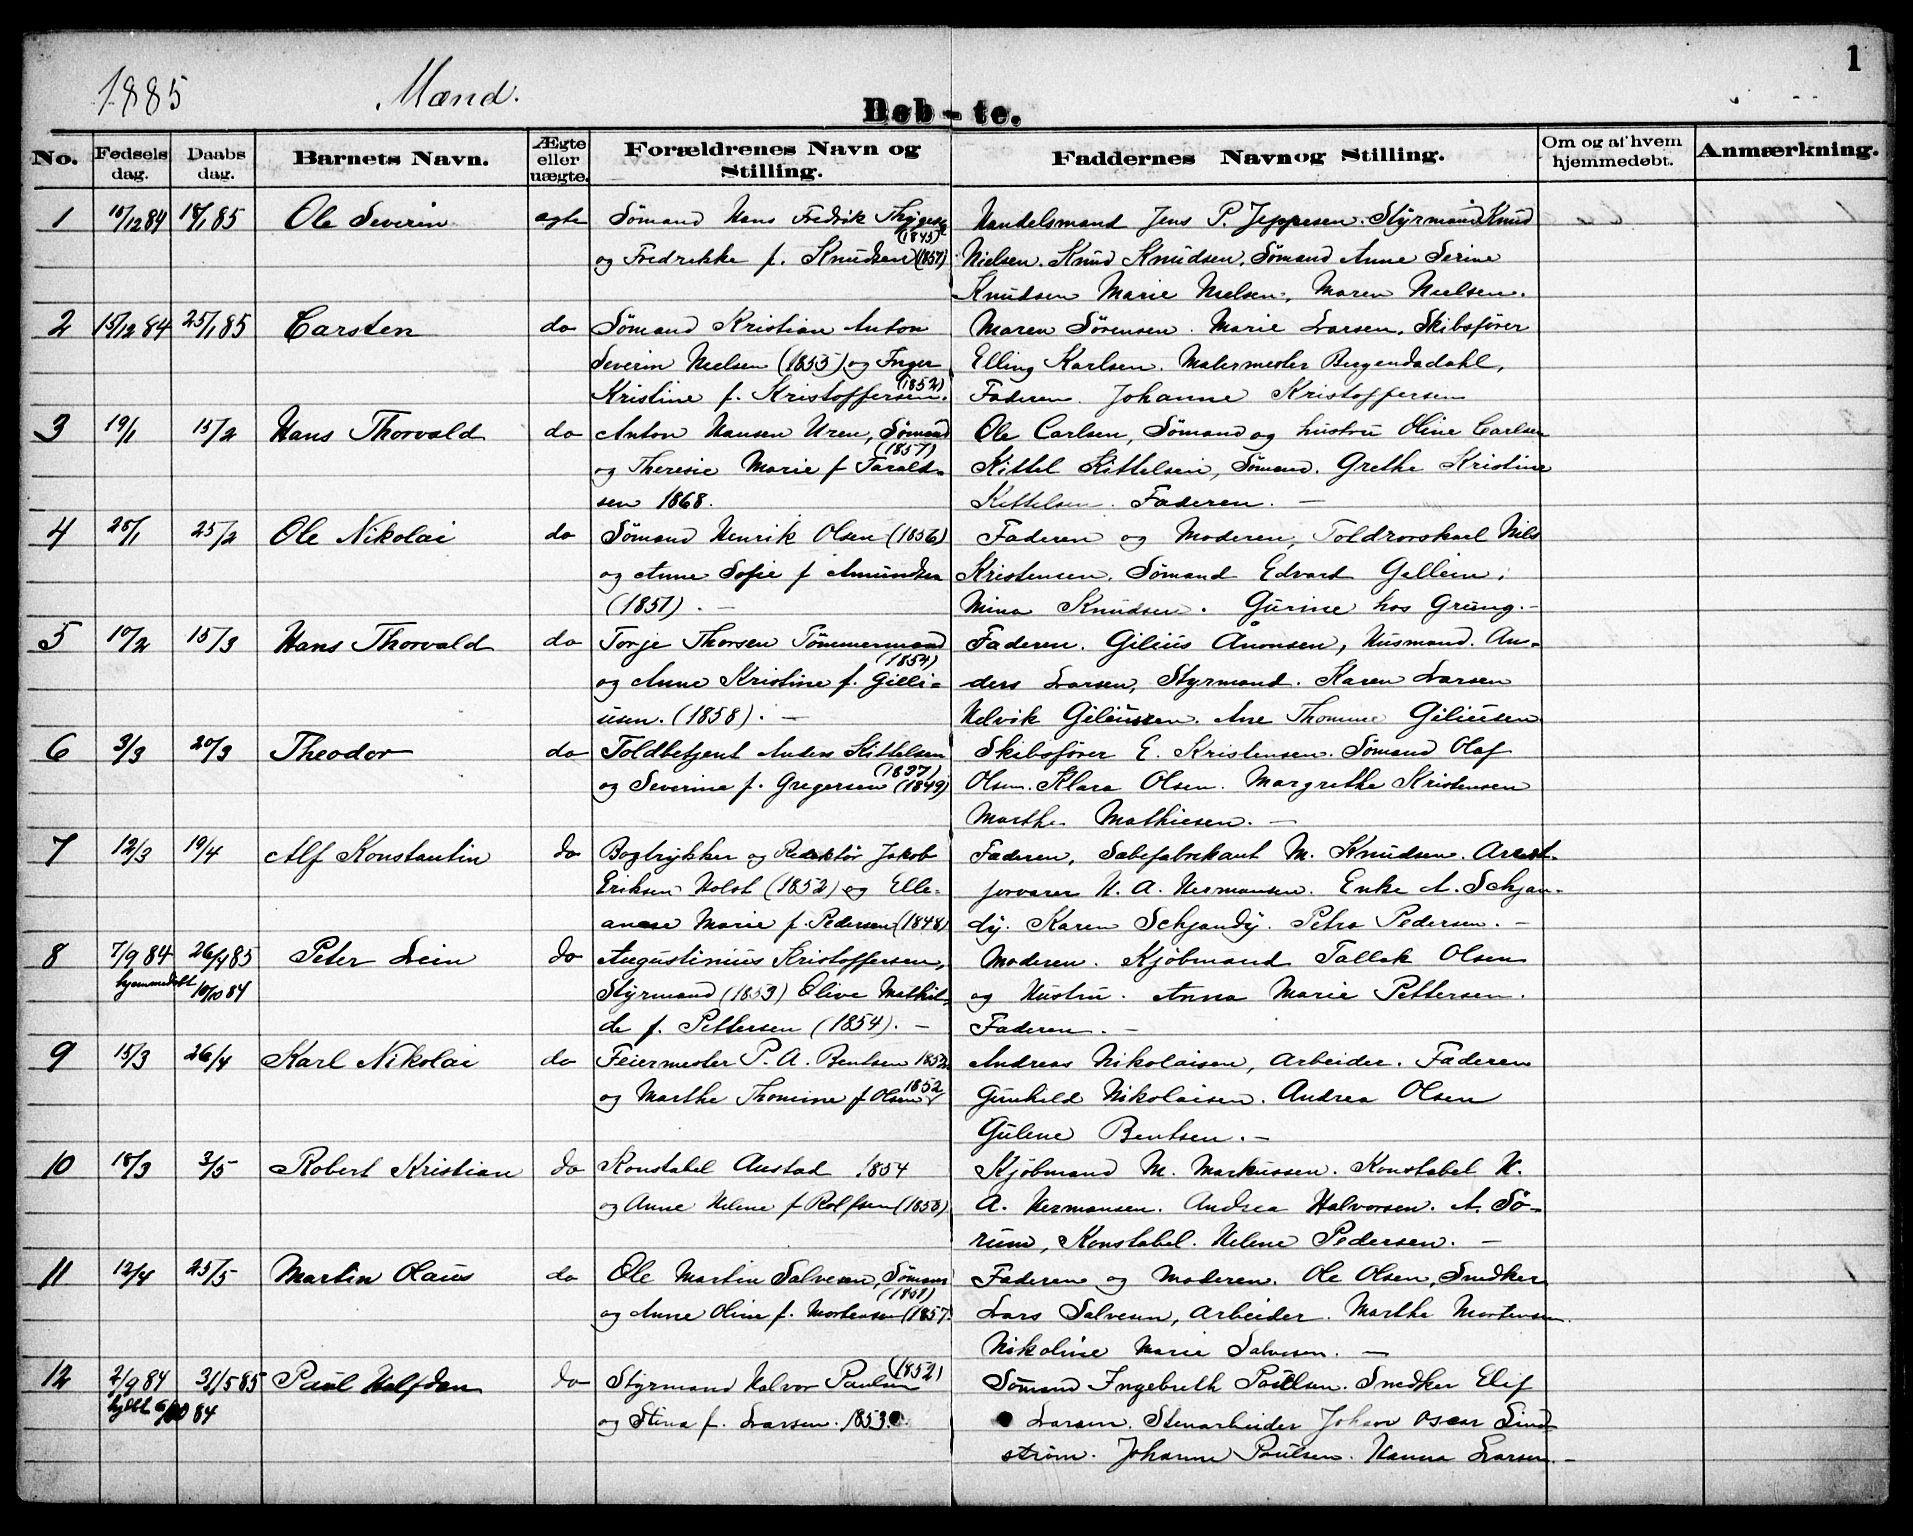 1
1885 Mænd.
Døb-te.
No. Fødsels dag. Daabs dag. Barnets Navn. Ægte eller uægte. Forældrenes Navn og Stilling. Faddernes Navn og Stilling. Om og af hvem hjemmedøbt. Anmærkning.
1 15/12 84 18/1 85 Ole Severin ægte Sømand Hans Fredrik Thygese Handelsmand Jens P. Jeppesen. Styrmand Knud
(1845)
og Fredrikke f. Knudsen (1857) Nielsen. Knud Knudsen, Sømand Anne Serine
Knudsen Marie Nielsen, Maren Nielsen.
2 15/12 84 25/1 85 Carsten do Sømand Kristian Anton Maren Sørensen. Marie Larsen, Skibsfører
Severin Nielsen (1853) og Inger Elling Karlsen. Malermester Bergendadahl,
(1852)
Kristine f. Kristoffersen. Faderen. Johanne Kristoffersen
3 19/1 15/2 Hans Thorvald do Anton Hansen Uren, Sømand Ole Carlsen, Sømand og hustru Oline Carlsen
(1857)
og Theresie Marie f Tarald- Kittel Kittelsen, Sømand. Grethe Kristine
sen 1868. Kittelsen. Faderen. —
4 28/1 25/2 Ole Nikolai do Sømand Henrik Olsen (1856) Faderen og Moderen, Toldrorskarl Nils
og Anne Sofie f Amundsen Kristensen, Sømand Edvard Gellein,
(1851). — Mina Knudsen. Gurine hos Grung. –
5 10/2 15/3 Hans Thorvald do Torje Thorsen Tømmermand Faderen. Gilius Ånonsen, Husmand. An-
(1854)
og Anne Kristine f. Gilli- ders Larsen, Styrmand. Karen Larsen
usen. (1858). — Helvik Giliussen. Ane Thomine Giliusen
6 3/3 20/3 Theodor do Toldbetjent Anders Kittelsen Skibsfører E. Kristensen. Sømand Olaf
og Severine f. Gregersen (1849) Olsen. Klara Olsen. Margrethe Kristensen
Marthe Mathiesen. —
7 12/3 19/4 Alf Konstantin do Bogtrykker og Redaktør Jakob Faderen, Sæbefabrikant M. Knudsen. Arrest-
Eriksen Holst (1852) og Elle- forvarer H. A. Hermansen. Enke A. Schjan-
anese Marie f. Pedersen (1848) dy. Karen Schjandy. Petra Pedersen. –
8 7/9 84 26/4 85 Peter Lein do Augustinius Kristoffersen, Moderen. Kjøbmand Tallak Olsen
hjemmedøbt 10/10 84 Styrmand (1853) Olive Mathil- og Hustru. Anna Marie Pettersen.
de f. Pettersen (1854). – Faderen. –
9 15/3 26/4 Karl Nikolai do Feiermester P. A. Bentsen 1852 Andreas Nikolaisen, Arbeider. Faderen
1852
og Marthe Thomine f Olsen Gunhild Nikolaisen. Andrea Olsen
Gulene Bentsen. –
10 18/3 3/5 Robert Kristian do Konstabel Austad 1854 Kjøbmand M. Markussen. Konstabel H.
og Anne Helene f Rolfsen (1858) A. Hermansen. Andrea Halvorsen. A. Sø-
rum, Konstabel. Helene Pedersen. —
11 12/4 25/5 Martin Olaus do Ole Martin Salvesen, Sømand Faderen og Moderen. Ole Olsen, Snedker
(1851)
og Anne Oline f. Mortensen (1857. Lars Salvesen, Arbeider. Marthe Mortensen.
Nikoline Marie Salvesen. —
12 2/9 84 31/5 85 Paul Halfdan do Styrmand Halvor Paulsen (1852) Sømand Ingebreth Paulsen. Snedker Elif
hjdbt 6/10 84 og Stina f. Larsen. 1853. Larsen. Stenarbeider Johan Oscar Lind
strøm. Johanne Paulsen. Hanna Larsen. –